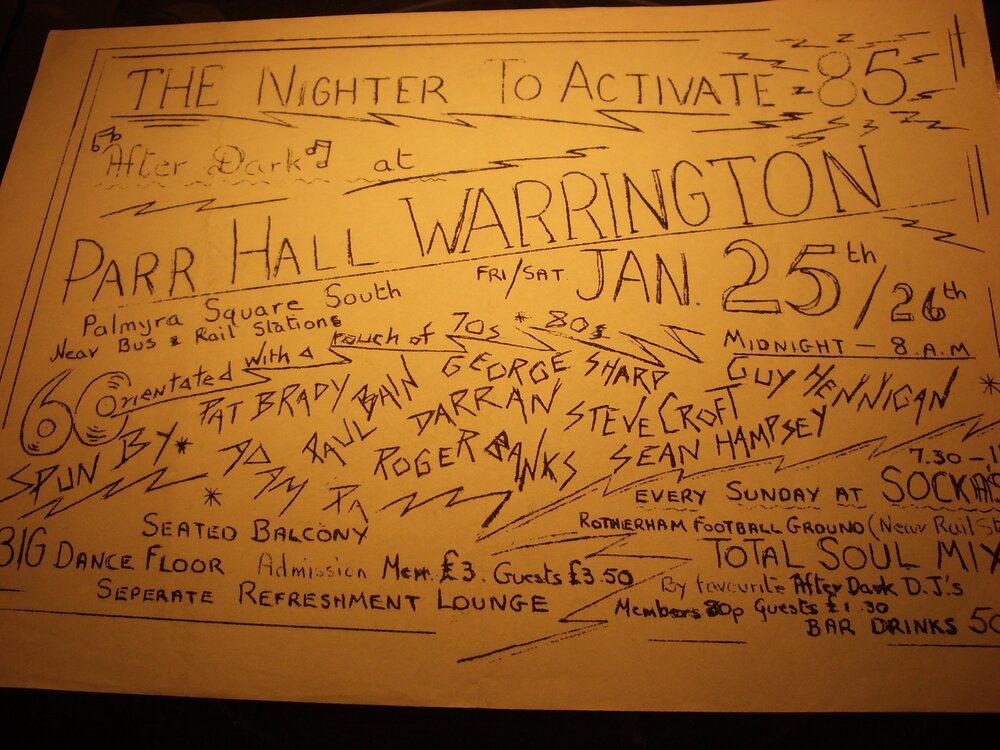 THE NIGHTER TO ACTIVATE 85
After Dark at
PARR HALL WARRINGTON
Palmyra Square South
Near Bus & Rail Stations
FRI/SAT JAN. 25th/26th
MIDNIGHT - 8.A.M
60s Orientated with a touch of 70s * 80s
SPUN BY * PAT BRADY GEORGE SHARP GUY HENNIGAN *
PAUL BAIN DARRAN STEVE CROFT
* ROGER BANKS SEAN HAMPSEY
SEATED BALCONY
BIG DANCE FLOOR Admission Mem. £3. Guests £3.50
SEPERATE REFRESHMENT LOUNGE
7.30 -
EVERY SUNDAY AT
ROTHERHAM FOOTBALL GROUND (Near Rail
TOTAL SOUL MIX
By favourite After Dark D.J.'s
Members 80p Guests £1.30
BAR DRINKS